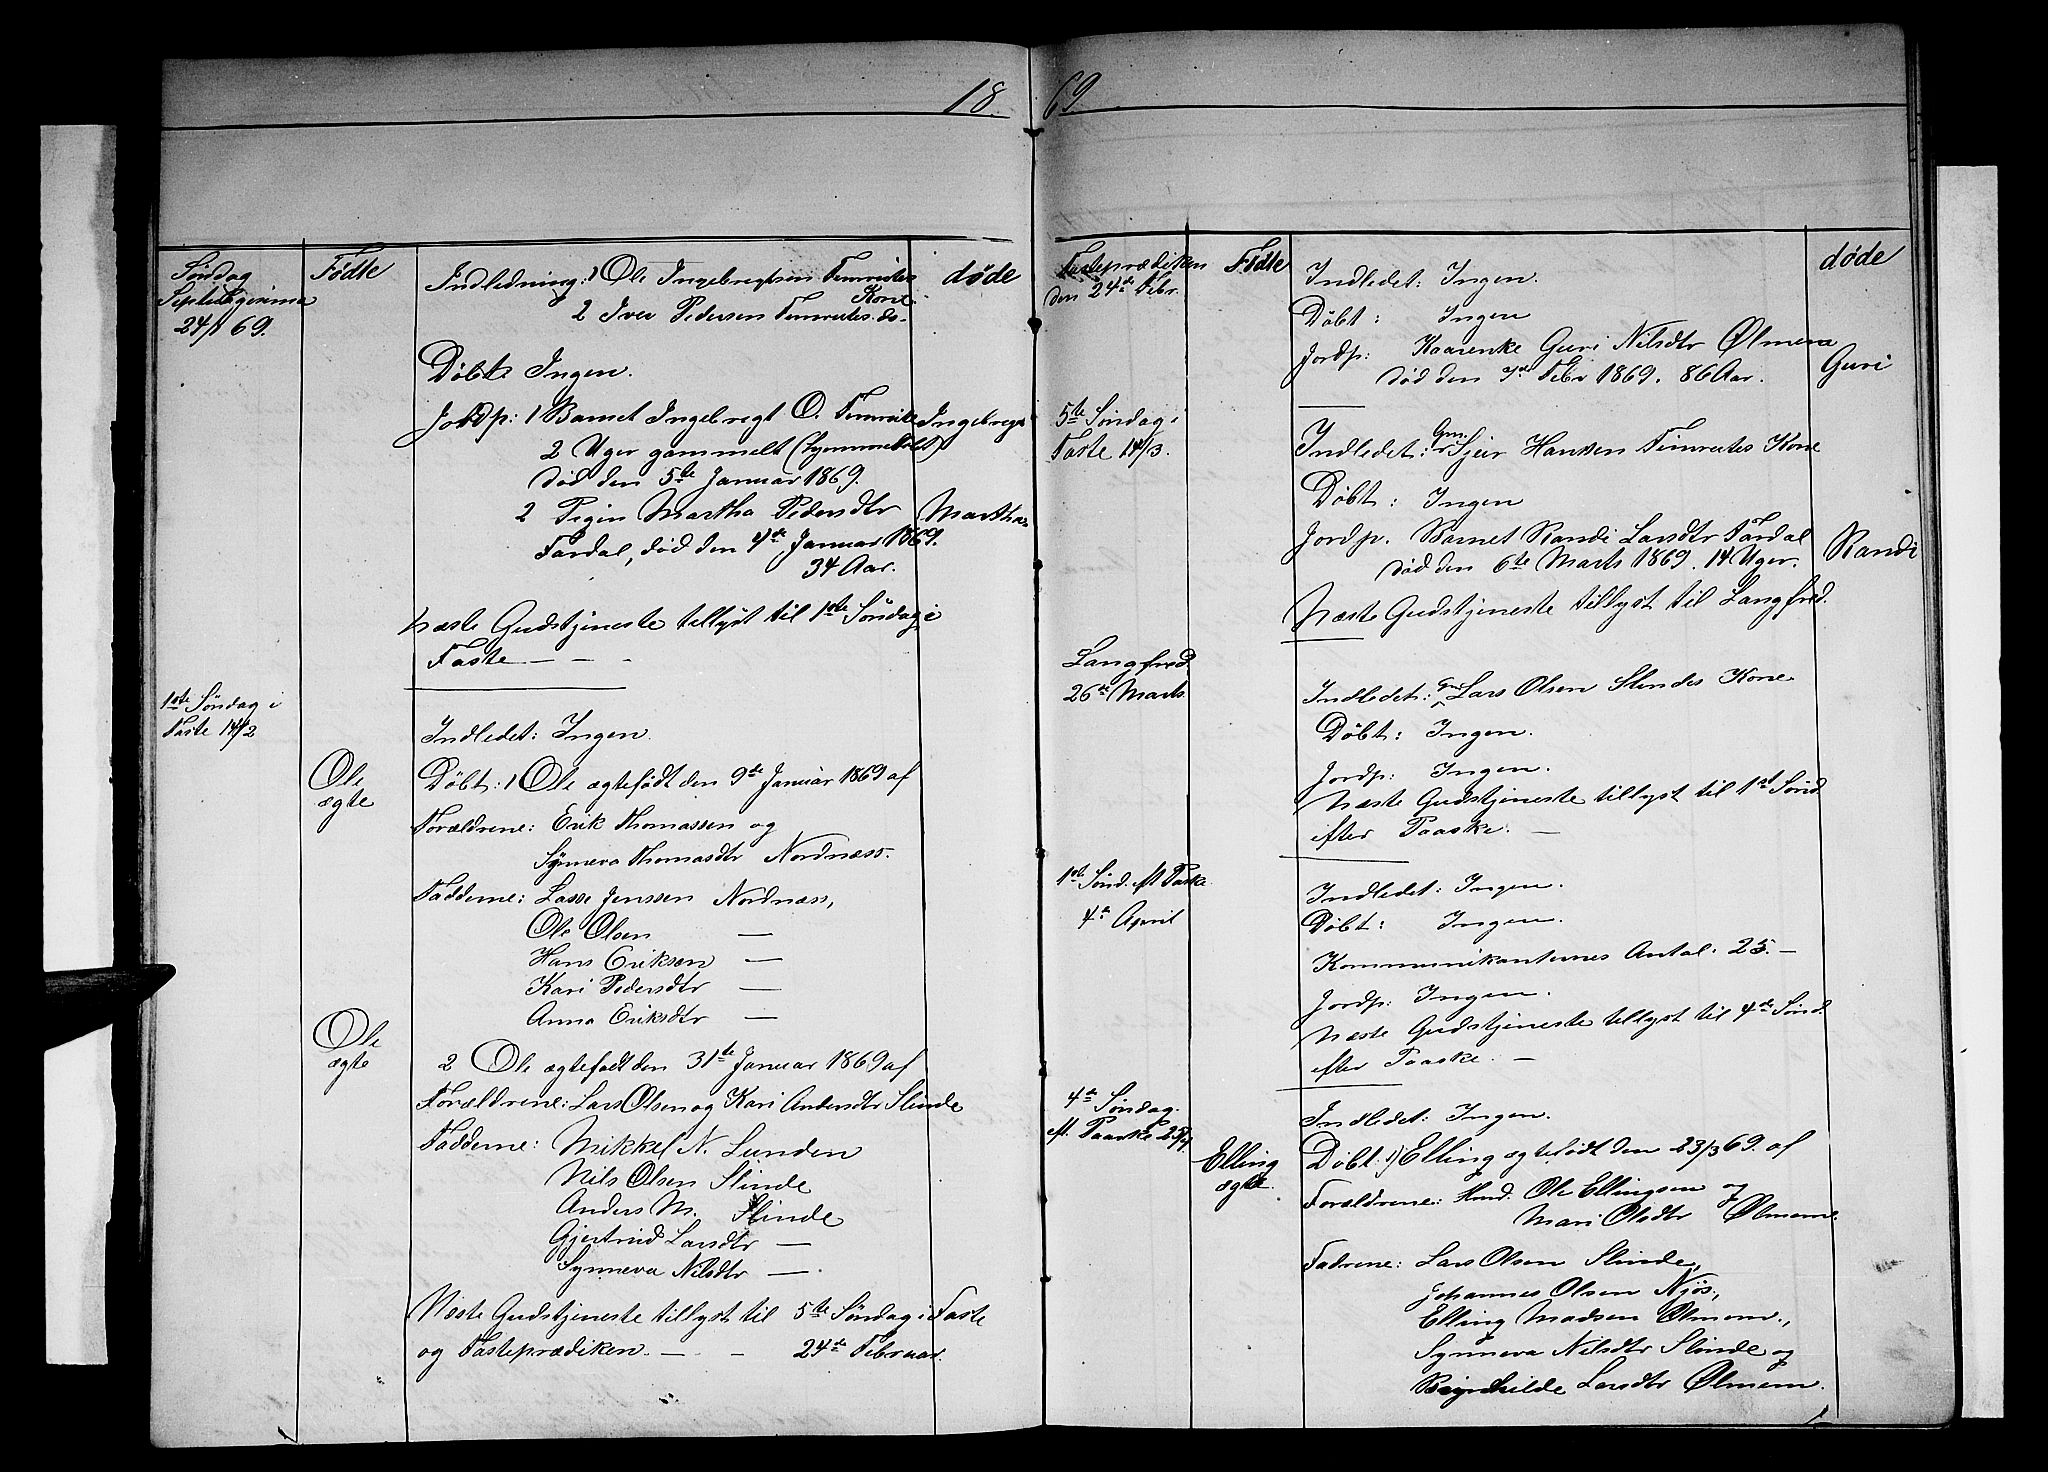 18 69
Søndag
Septuagesima
24/1 69.
Fødte
Indledning: 1 Ole Ingebregtsen Fimreites
Kone
2 Iver Pedersen Fimreites do-
døde
Døbte Ingen.
Jordp: 1 Barnet Ingebregt O. Fimreite
Ingebregt
2 Uger gammelt (hjemmedøbt)
død den 5te Januar 1869.
2 Pigen Martha Pedersdtr
Martha
Fardal, død den 4de Januar 1869.
34 Aar.
Næste Gudstjeneste tillyst til 1ste Søndag i
Faste — — -
1ste Søndag i
Faste 14/2
Indledet: Ingen.
Ole
ægte
Døbt: 1 Ole ægtefødt den 9de Januar 1869 af
Forældrene: Erik Thomassen og
Synneva Thomasdtr Nordnæss.
Fadderne: Lasse Jenssen Nordnæss,
Ole Olsen —
Hans Eriksen —
Kari Pedersdtr —
Anna Eriksdtr —
Ole
ægte
2 Ole ægtefødt den 31te Januar 1869 af
Forældrene: Lars Olsen og Kari Andersdtr Slinde
Fadderne: Mikkel N. Lunden
Nils Olsen Slinde
Anders M. Slinde
Gjertrud Larsdtr —
Synneva Nilsdtr —.
Næste Gudstjeneste tillyst til 5te Søndag i Faste
og Fasteprædiken. — - 24de Februar.
Fasteprædiken
den 24de Febr.
Fødte
Indledet: Ingen.
døde
Døbt: Ingen
Jordp: Kaarenke Guri Nilsdtr Ølmem
Guri
død den 7de Febr 1869. 86 Aar.
5te Søndag i
Faste 14/3.
Indledet: Gm. Sjur Hansen Fimreites Kone
Døbt: Ingen
Jordp. Barnet Randi Larsdtr Fardal
Randi
død den 6te Marts 1869. 14 Uger.
Næste Gudstjeneste tillyst til Langfred.
Langfred.
26de Marts
Indledet: Gm Lars Olsen Slindes Kone
Døbt: Ingen.
Jordp: Ingen.
Næste Gudstjeneste tillyst til 1st Sønd
efter Paaske. —
1ste Sønd. eft Paske.
4de April
Indledet: Ingen.
Døbt: Ingen.
Kommunikanternes Antal. 25. —
Jordp: Ingen.
Næste Gudstjeneste tillyst til 4de Sønd.
efter Paaske. —
4de Søndag.
eft. Paaske 25/4
Indledet: Ingen.
Elling
ægte.
Døbt. 1) Elling ægtefødt den 23/3 69. af
Forældrene: Hmd. Ole Ellingsen og
Mari Olsdtr Ølmem.
Fadrene: Lars Olsen Slinde,
Johannes Olsen Njøs,
Elling Madsen Ølmem.,
Synneva Nilsdtr Slinde og
Larsdtr Ølmem.